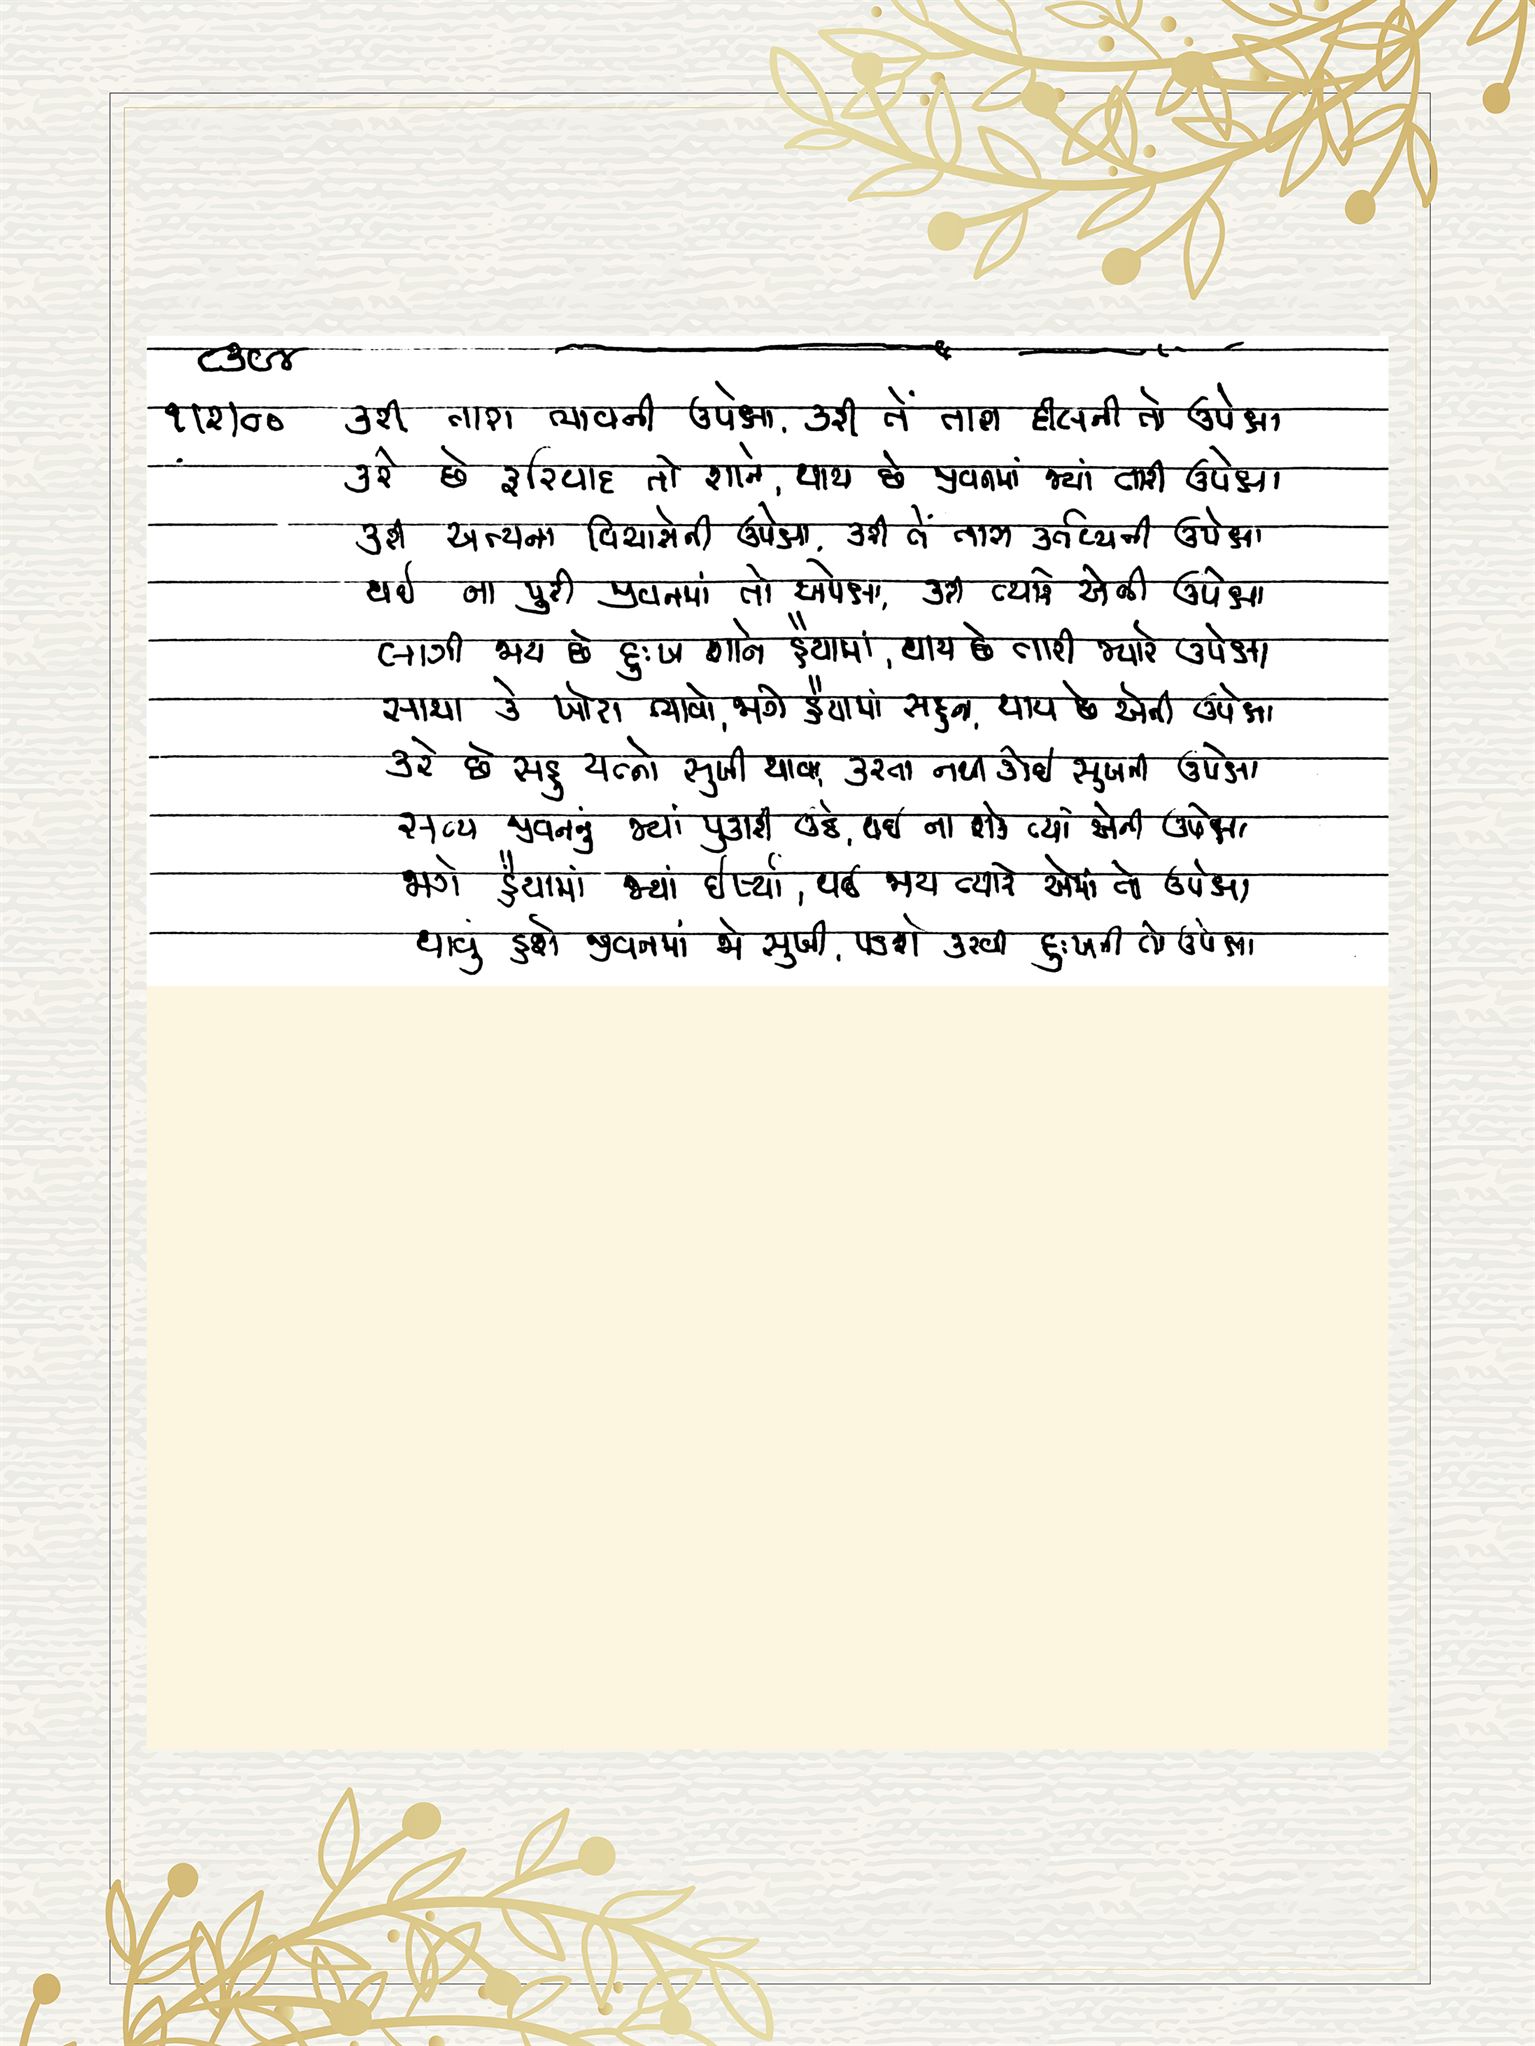 ૮૩૯૪
૧|૨|૦૦ કરી તારા ભાવની ઉપેક્ષા, કરી તેં તારા દીલની તો ઉપેક્ષા
કરે છે ફરિયાદ તો શાને, થાય છે જીવનમાં જ્યાં તારી ઉપેક્ષા
કરી અન્યના વિચારોની ઉપેક્ષા, કરી તેં તારા કર્તવ્યની ઉપેક્ષા
થઈ ના પુરી જીવનમાં તો અપેક્ષા, કરી ત્યારે એની ઉપેક્ષા
લાગી જાય છે દુઃખ શાને હૈયામાં, થાય છે તારી જ્યારે ઉપેક્ષા
સાચા કે ખોટા ભાવો, જાગે હૈયામાં સહુને, થાય છે એની ઉપેક્ષા
કરે છે સહુ યત્નો સુખી થાવા, કરતા નથી કોઈ સુખની ઉપેક્ષા
સત્ય જીવનનું જ્યાં પુકારી ઉઠે, થઈ ના શકે ત્યાં એની ઉપેક્ષા
જાગે હૈયામાં જ્યાં ઈર્ષ્યા, થઈ જાય ત્યારે એમાં તો ઉપેક્ષા
થાવું હશે જીવનમાં જો સુખી, પડશે કરવી દુઃખની તો ઉપેક્ષા